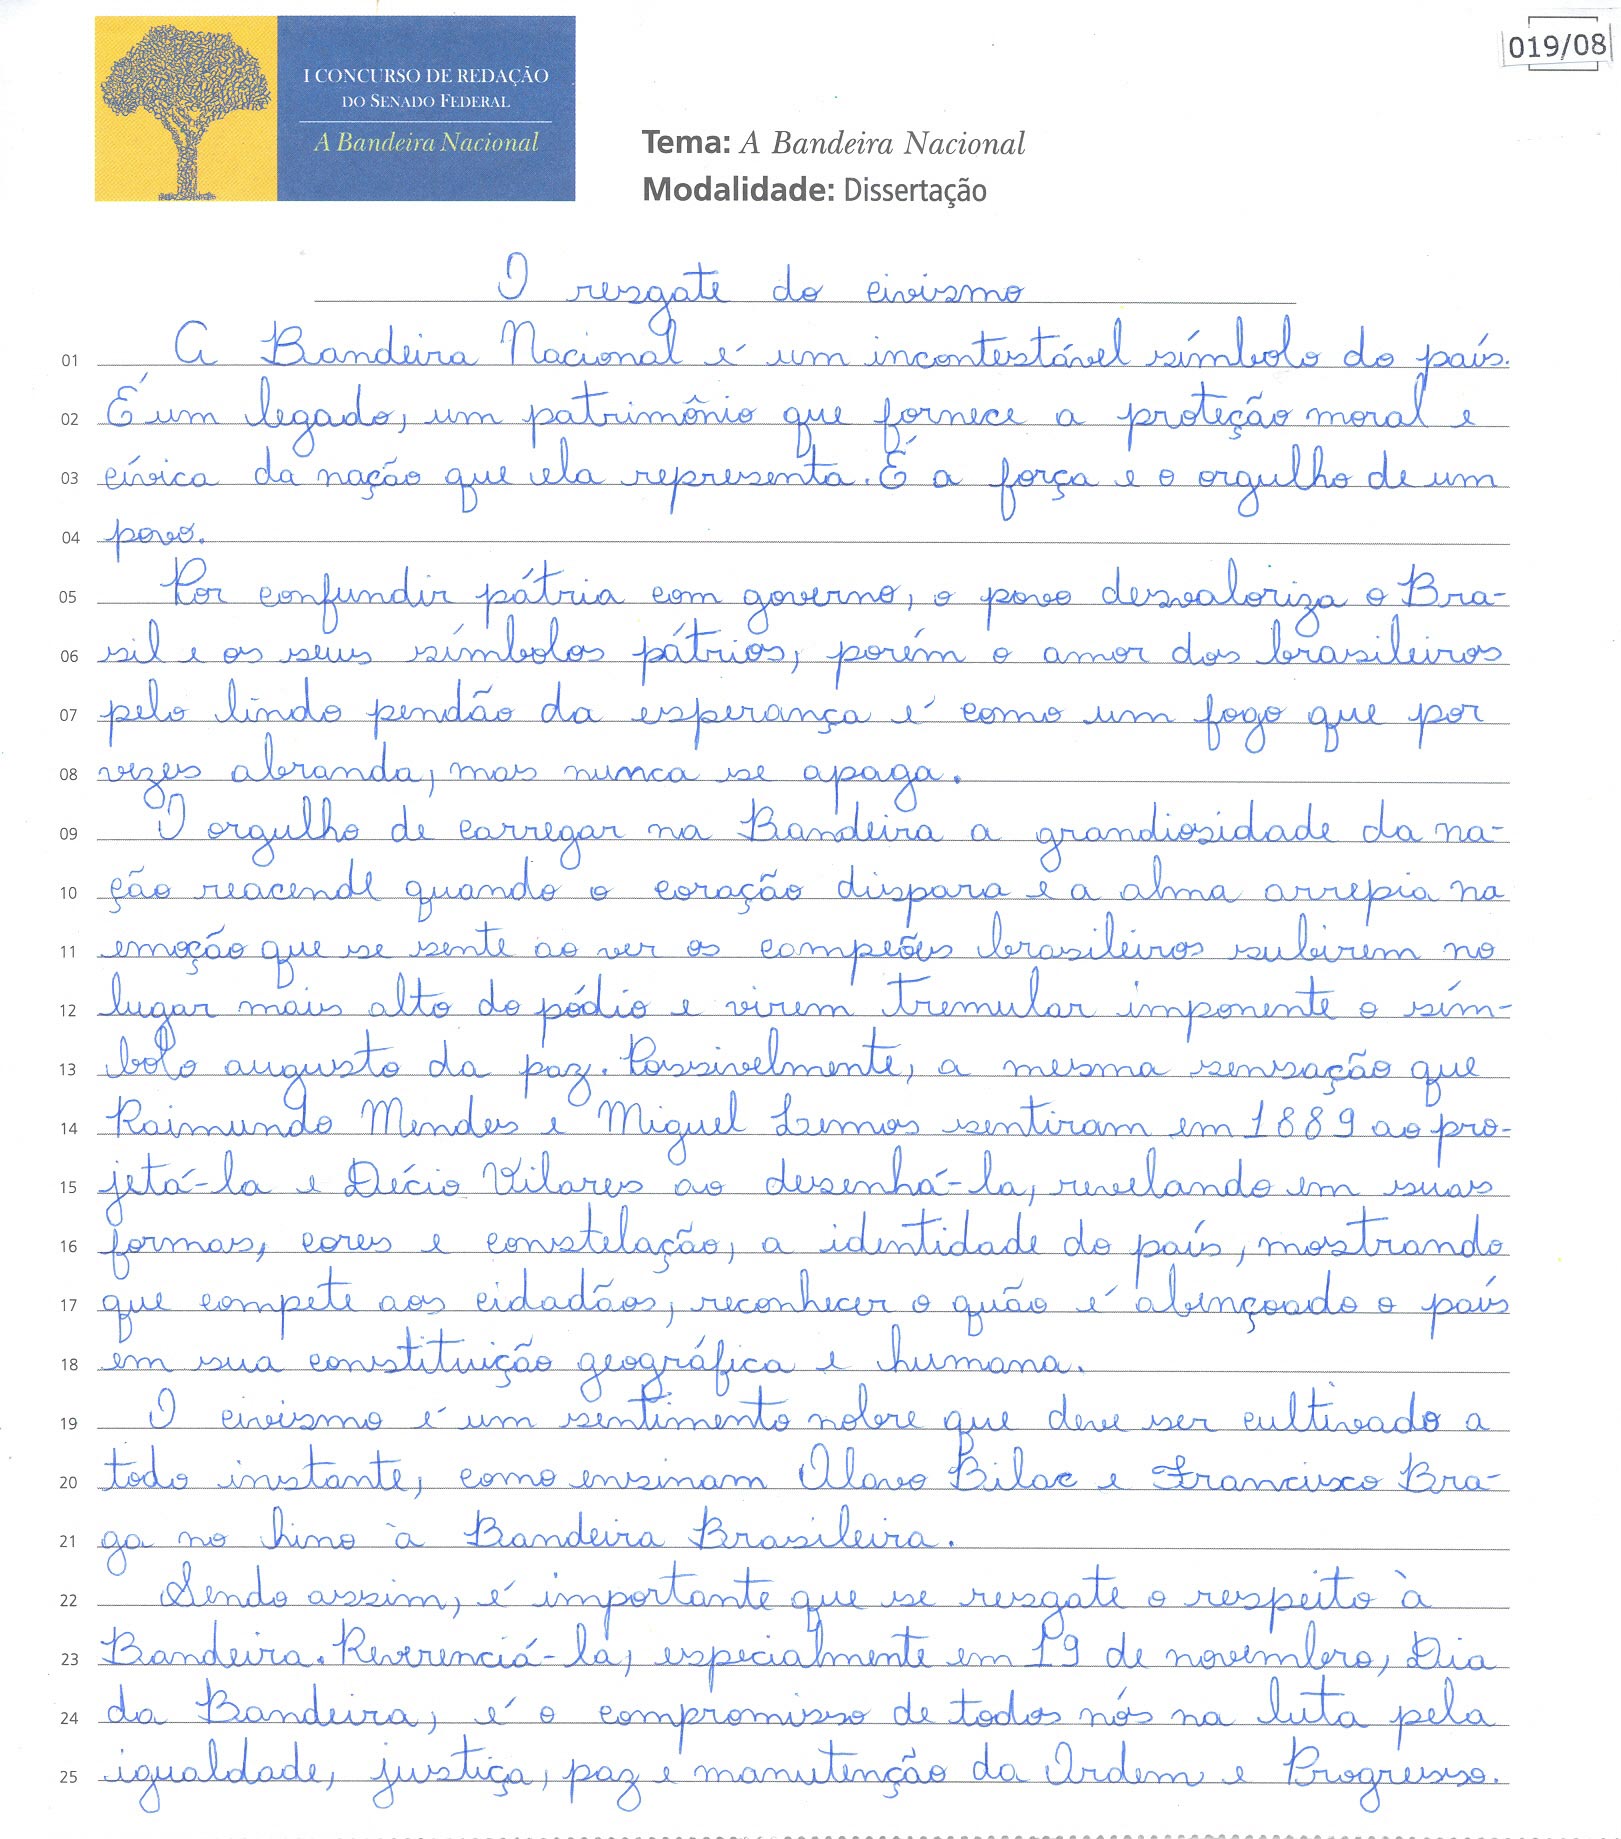 019/08
I CONCURSO DE REDAÇÃO
DO SENADO FEDERAL
A Bandeira Nacional
Tema: A Bandeira Nacional
Modalidade: Dissertação
O resgate do civismo
01 A Bandeira Nacional é um incontestável símbolo do país.
02 É um legado, um patrimônio que fornece a proteção moral e
03 cívica da nação que ela representa. É a força e o orgulho de um
04 povo.
05 Por confundir pátria com governo, o povo desvaloriza o Bra-
06 sil e os seus símbolos pátrios, porém o amor dos brasileiros
07 pelo lindo pendão da esperança é como um fogo que por
08 vezes abranda, mas nunca se apaga.
09 O orgulho de carregar na Bandeira a grandiosidade da na-
10 ção reacende quando o coração dispara e a alma arrepia na
11 emoção que se sente ao ver os campeões brasileiros subirem no
12 lugar mais alto do pódio e virem tremular imponente o sím-
13 bolo augusto da paz. Possivelmente, a mesma sensação que
14 Raimundo Mendes e Miguel Lemos sentiram em 1889 ao pro-
15 jetá-la e Décio Vilares ao desenhá-la, revelando em suas
16 formas, cores e constelação, a identidade do país, mostrando
17 que compete aos cidadãos, reconhecer o quão é abençoado o país
18 em sua constituição geográfica e humana.
19 O civismo é um sentimento nobre que deve ser cultivado a
20 todo instante, como ensinam Olavo Bilac e Francisco Bra-
21 ga no hino à Bandeira Brasileira.
22 Sendo assim, é importante que se resgate o respeito à
23 Bandeira. Reverenciá-la, especialmente em 19 de novembro, Dia
24 da Bandeira, é o compromisso de todos nós na luta pela
25 igualdade, justiça, paz e manutenção da Ordem e Progresso.